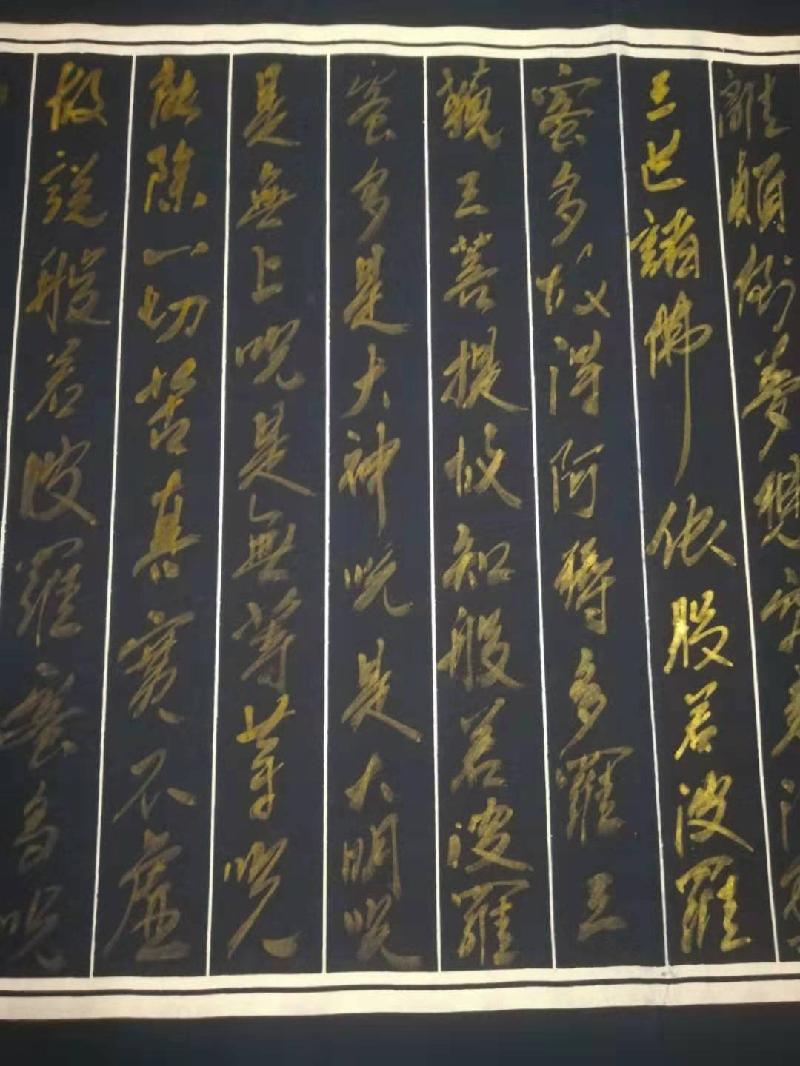 離顛倒夢想究竟涅槃
三世諸佛依般若波羅
蜜多故得阿耨多羅三
藐三菩提故知般若波羅
蜜多是大神呪是大明呪
是無上呪是無等等呪
能除一切苦真實不虛
故說般若波羅蜜多呪